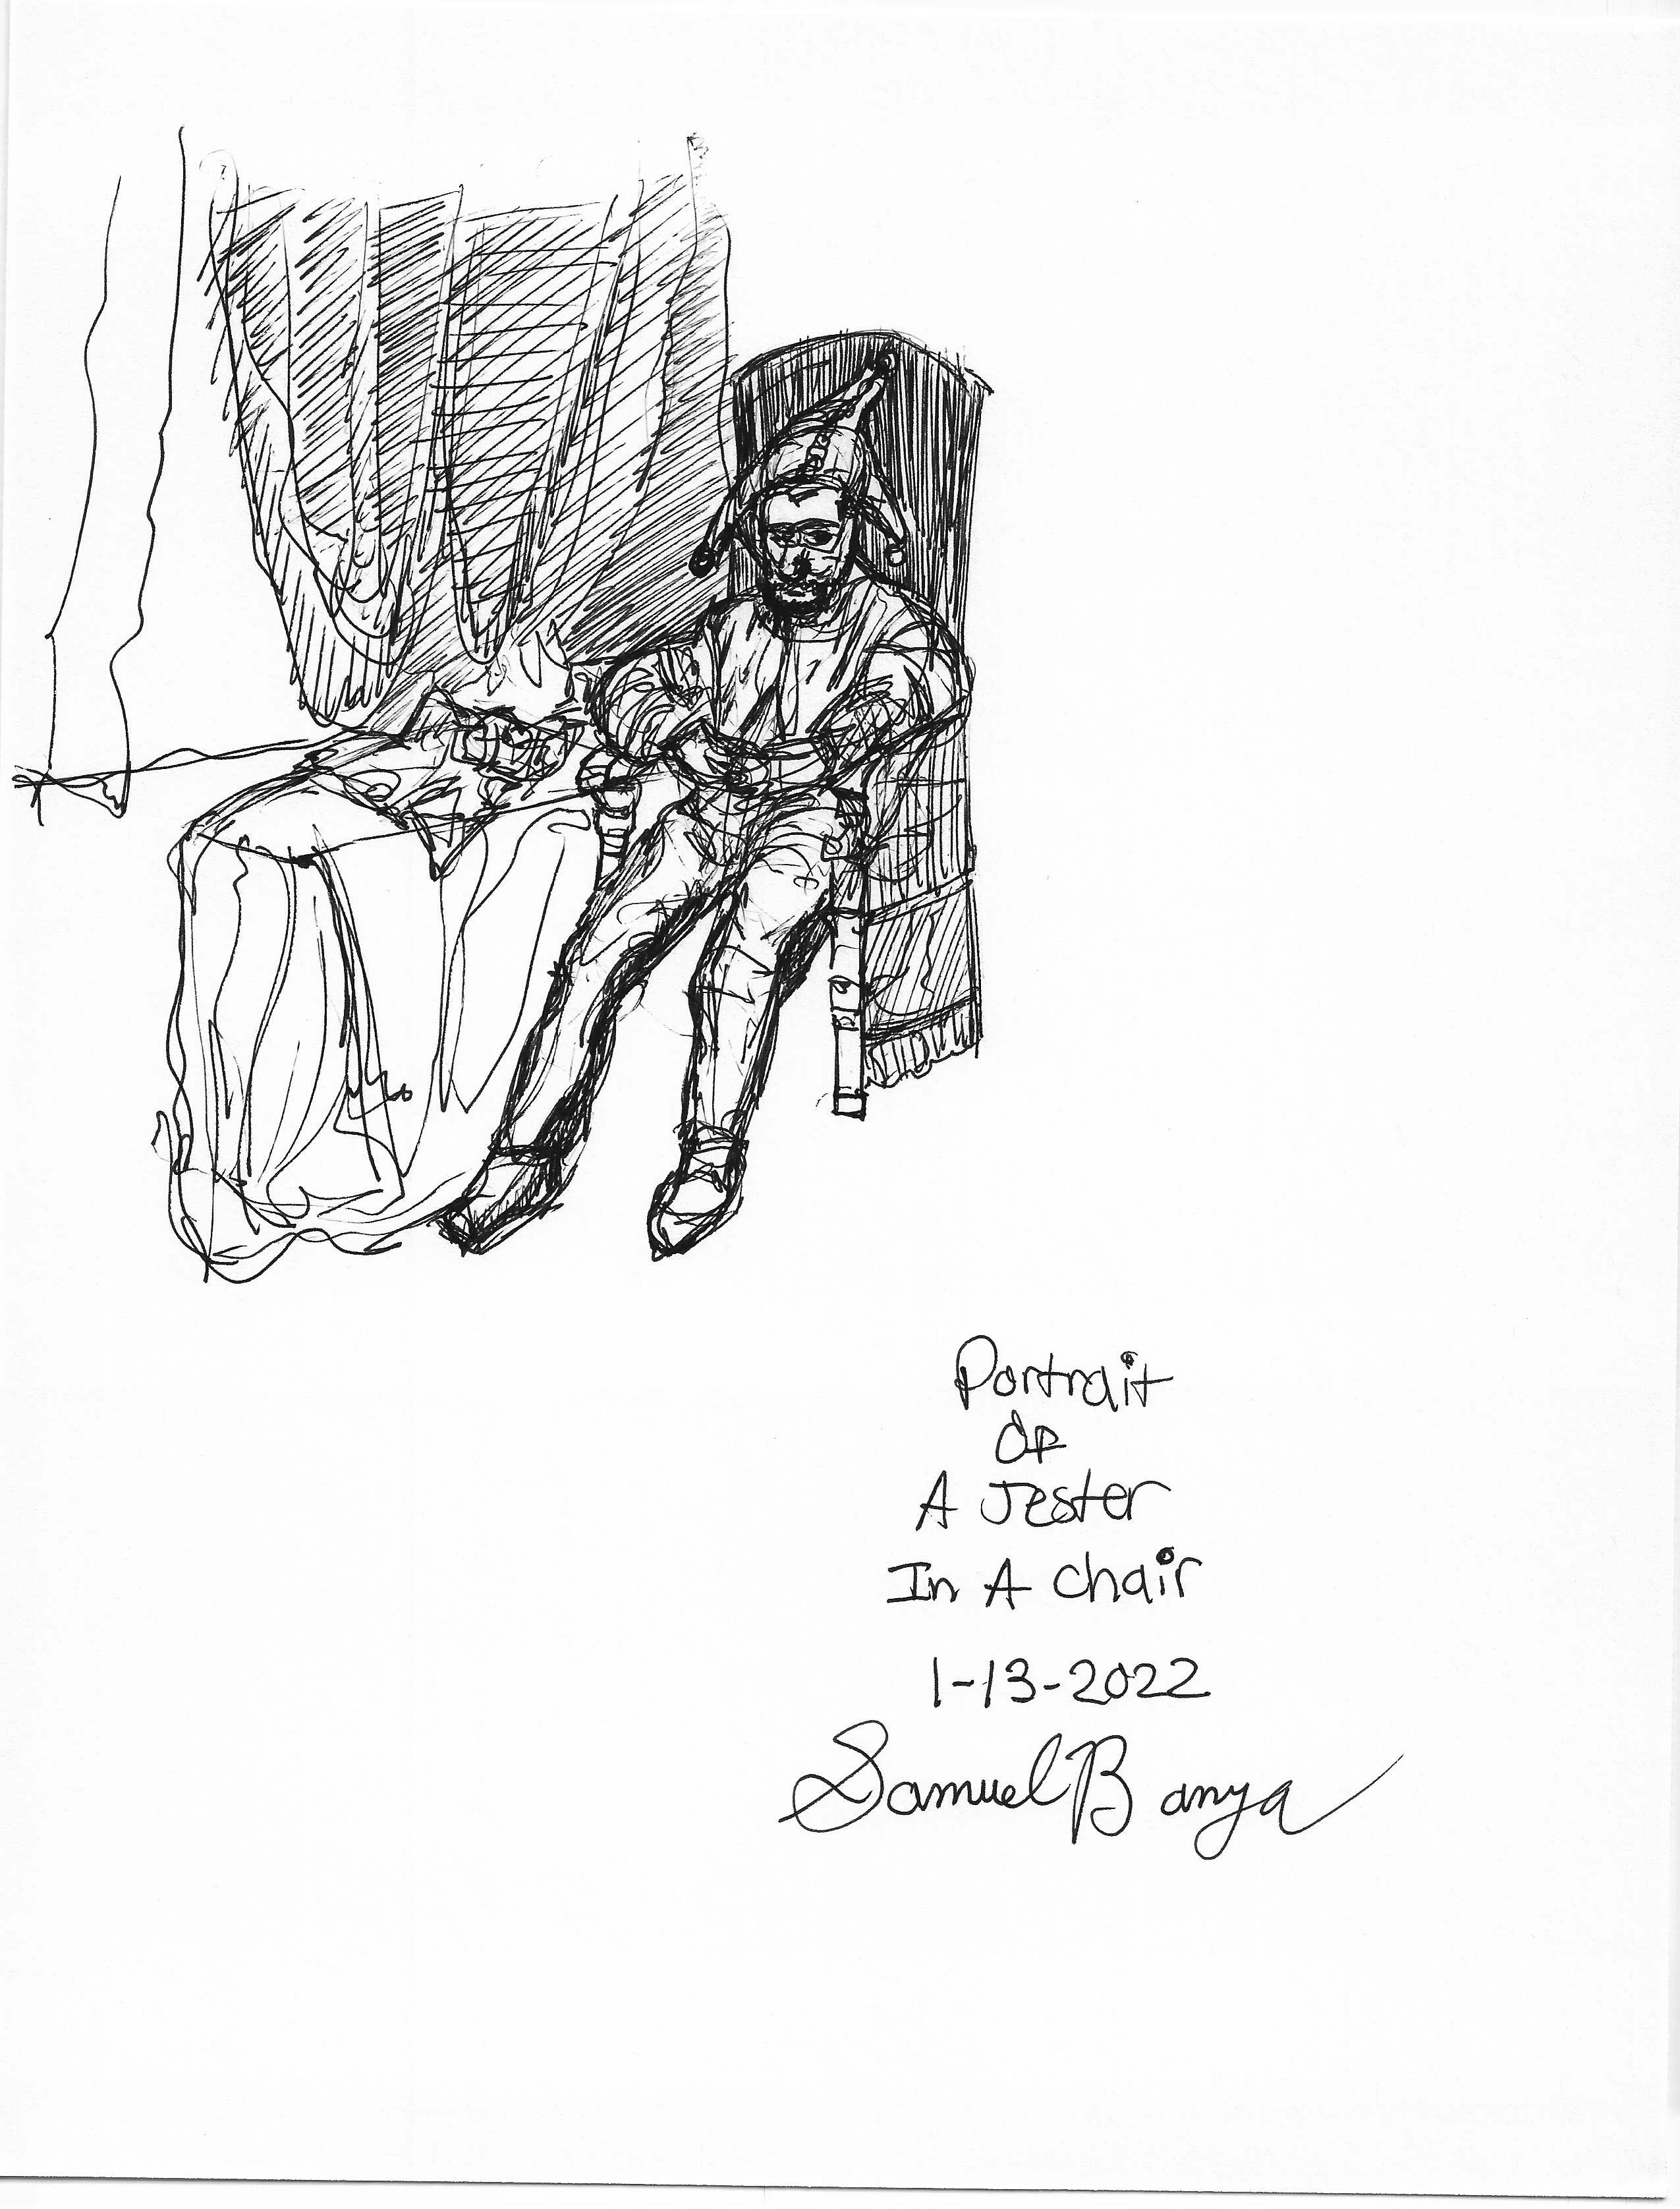 Portrait
Of
A Jester
In A Chair
1-13-2022
Samuel Banya